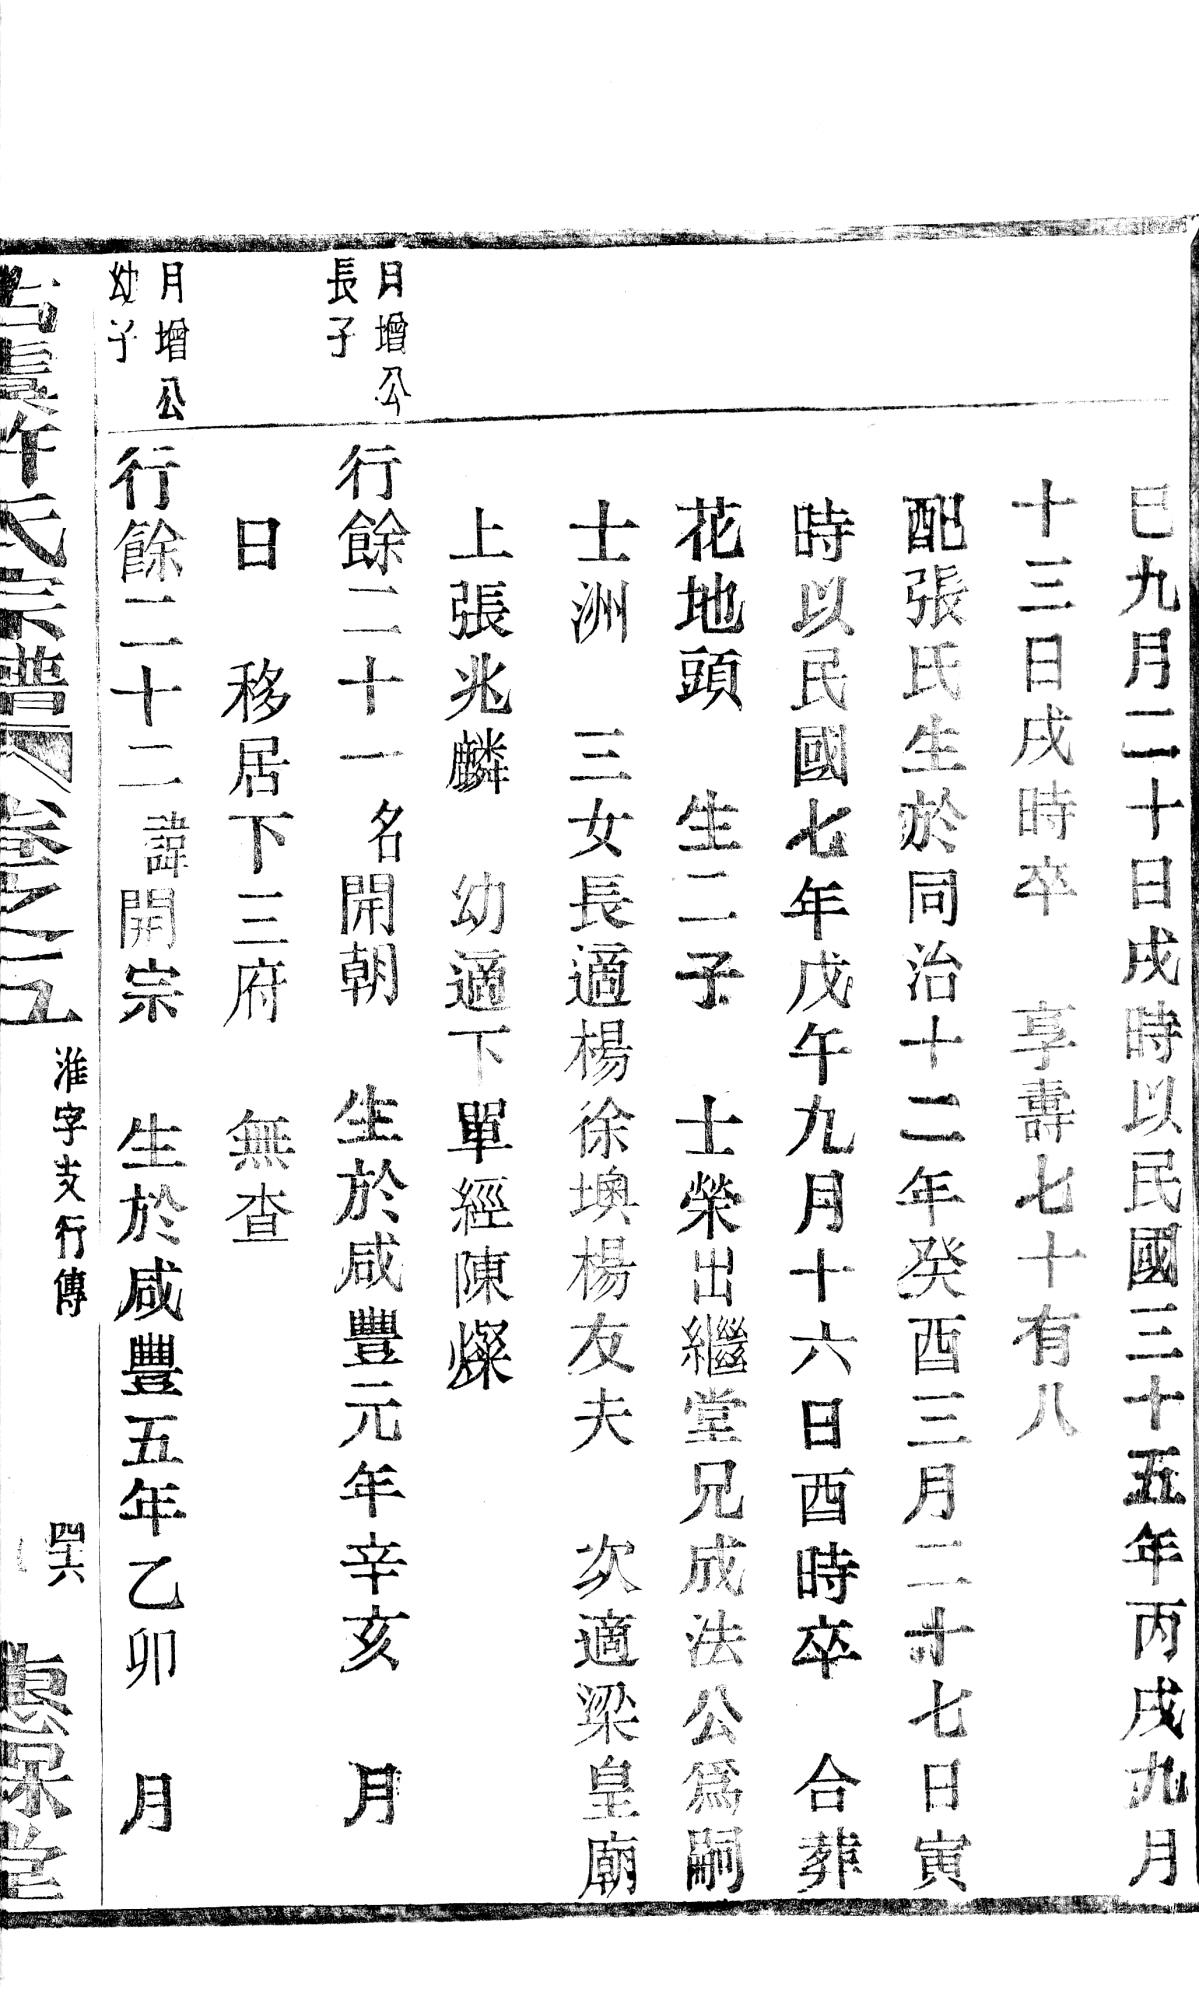 巳九月二十日戌時以民國三十五年丙戌九月
十三日戌時卒　享壽七十有八
配張氏生於同治十二年癸酉三月二十七日寅
時以民國七年戊午九月十六日酉時卒　合葬
花地頭　生二子　士榮出繼堂兄成法公爲嗣
士洲　三女長適楊徐墺楊友夫　次適梁皇廟
上張兆麟　幼適下單經陳燦
月增公
長子
行餘二十一名開朝　生於咸豐元年辛亥　月
日　移居下三府　無查
月增公
幼子
行餘二十二諱開宗　生於咸豐五年乙卯　月
許氏宗譜　卷之五　淮字支行傳　四六　堂